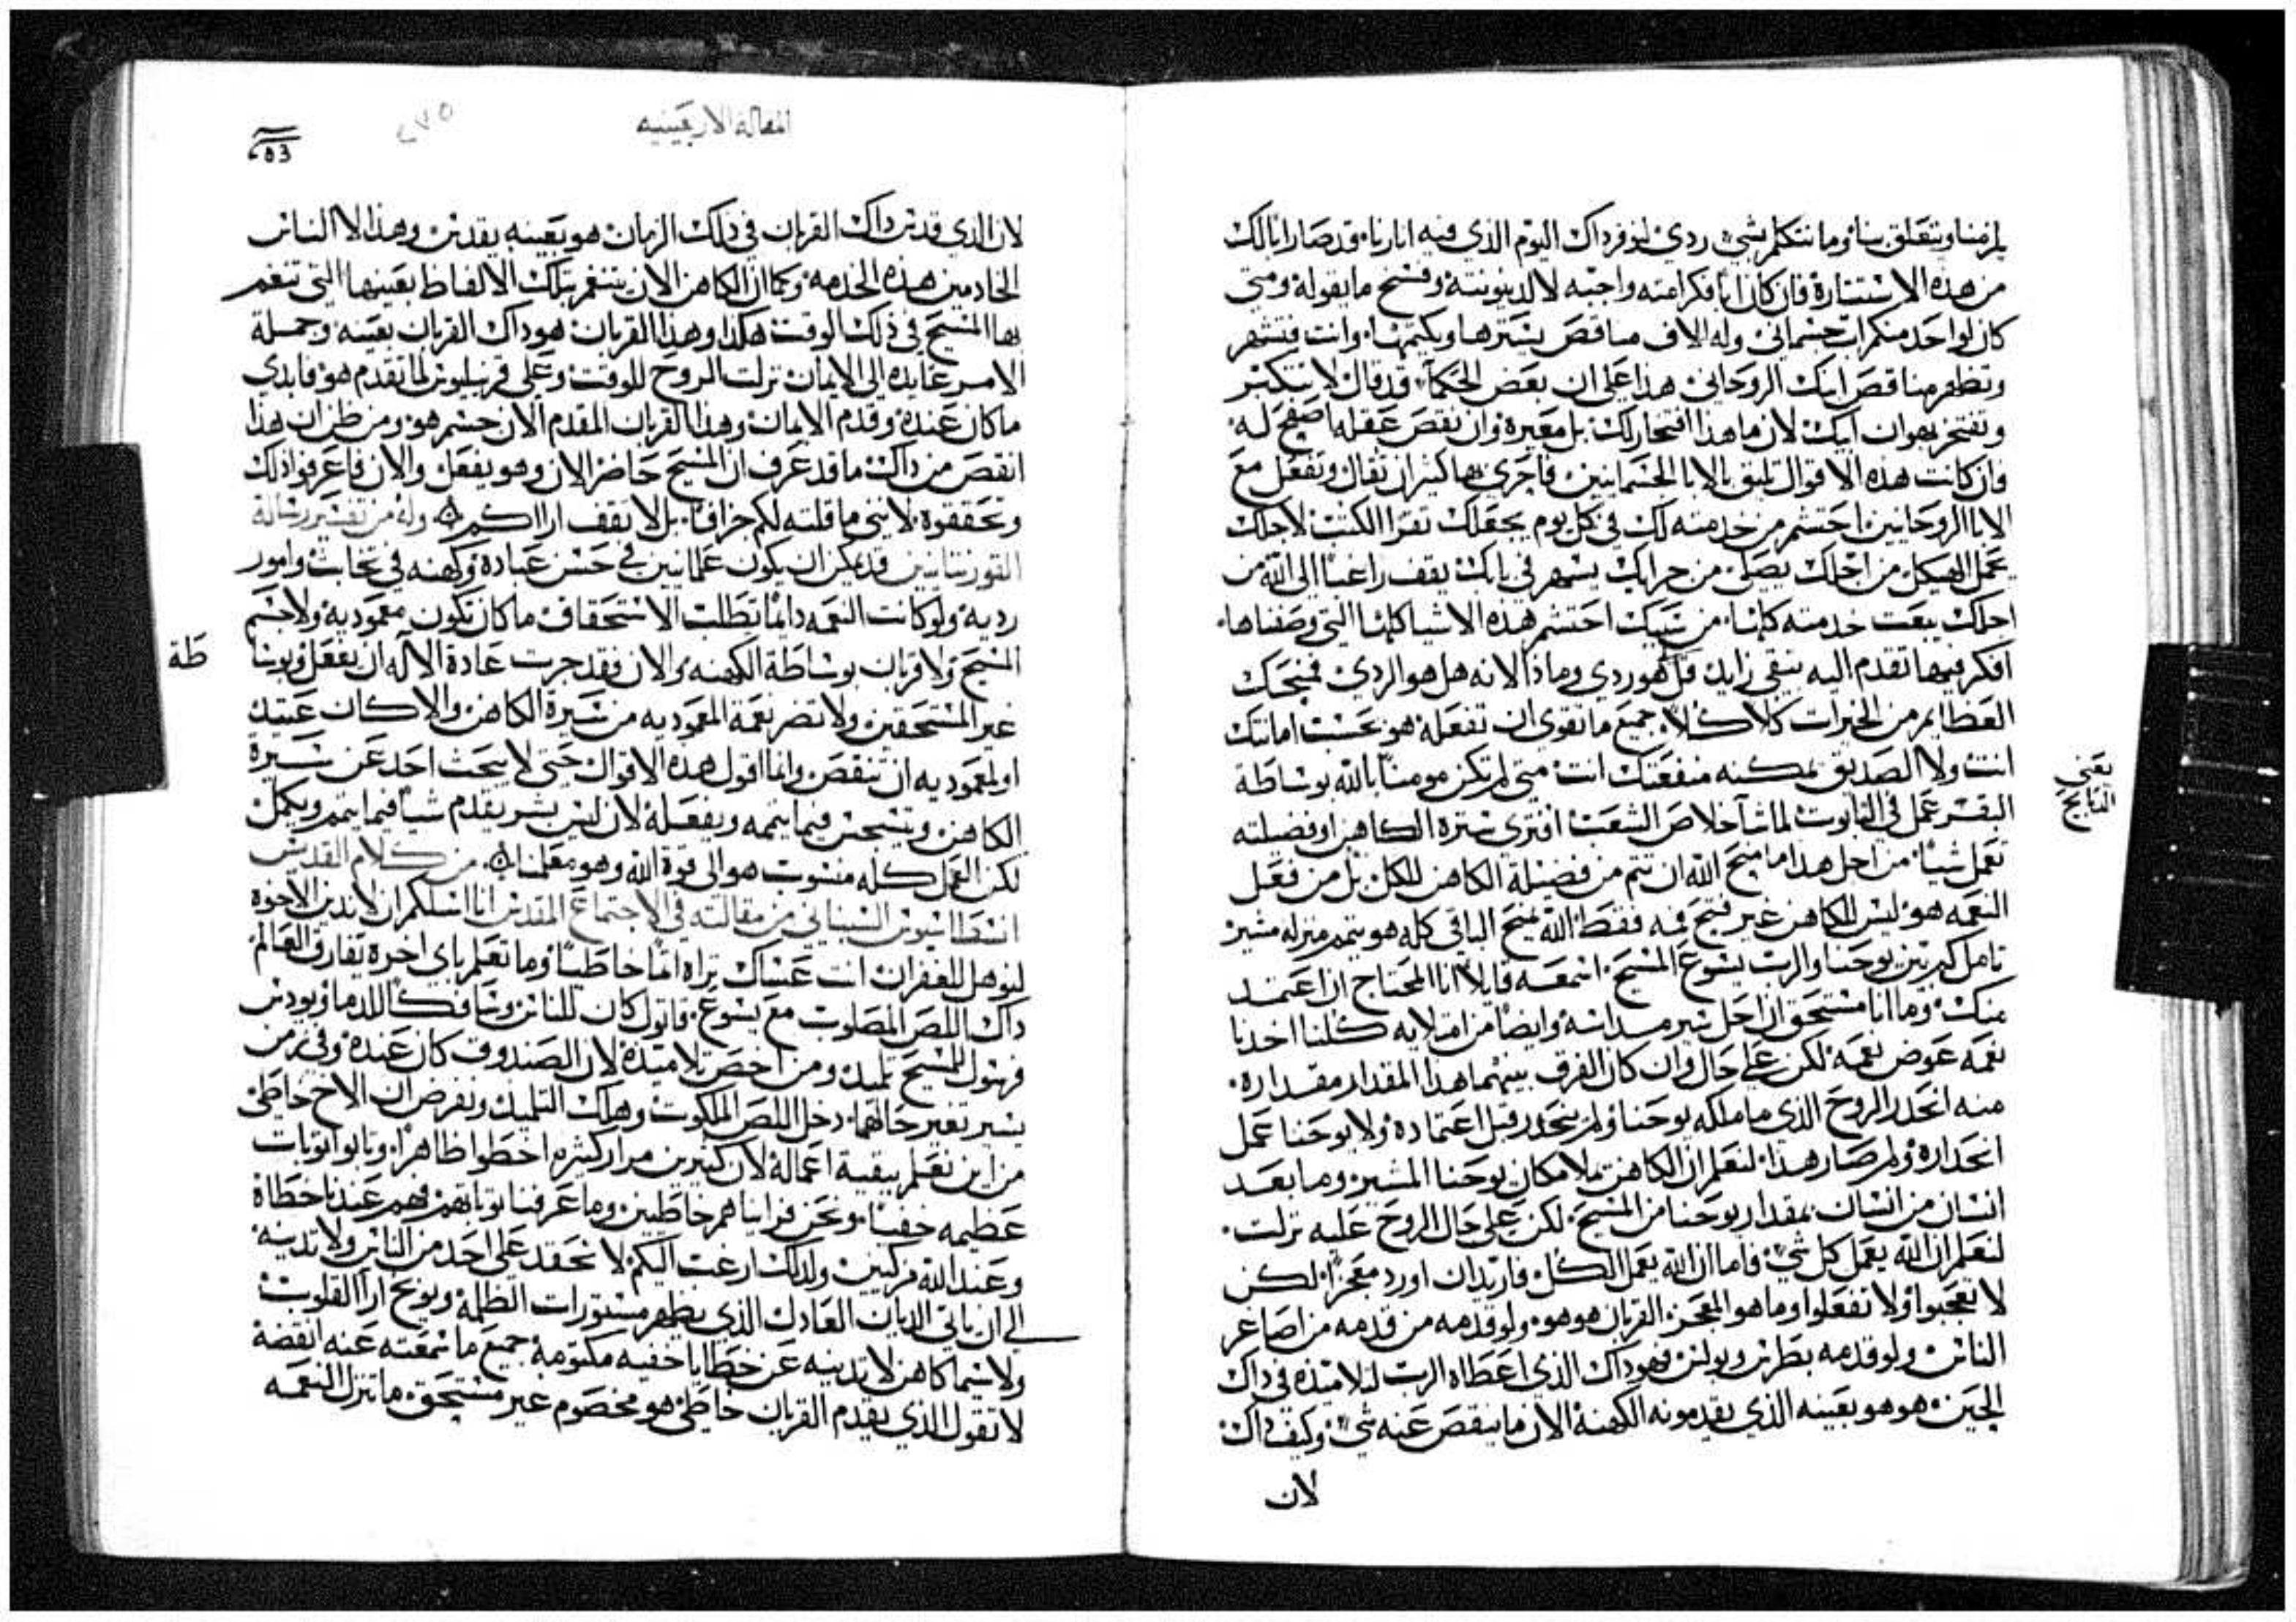 يلزمنا ويتعلق بنا وما نتكلم بشي ردي لنوقر داك اليوم الذي فيه انارنا قد صار ابا لك
من هذه الاستنارة فان كان ابا فكرامته واجبه لا لدينونته وفسخ ما يقوله ومتي
كان لواحد منكم اب جسماني وله الاف مناقص يسترها ويكتمها وانت فتشهر
وتظهر مناقص ابيك الروحاني هذا علي ان بعض الحكما قد قال لا تتكبر
وتفتخر بهوان ابيك لان ما هذا افتخار لك بل معيرة وان نقص عقله اصفح له
فان كانت هذه الاقوال تليق بالابا الجسمانيين فاحري بها كثيرا ان تقال وتفعل مع
الابا الروحانيين احتشم من خدمته لك في كل يوم يجعلك تقرا الكتب لاجلك
يجمل الهيكل من اجلك يصلي من جرايك يسهر في بابك يقف راغبا الي الله من
اجلك يبعت خدمته كلها من سببك احتشم هذه الاشيا كلها التي وصفناها
افكر فيها تقدم اليه بتقي زايد قل هو ردي وماذا الانه هل هو الردي فمنحك
العظايم من الخيرات كلا كلا جميع ما تقوي ان تفعله هو بحسب امانتك
انت ولا الصديق يمكنه منفعتك انت متي لم تكن مومنا بالله بوساطة
البقر عمل في التابوت لما شا خلاص الشعب افتري سيرة الكاهن او فضيلته
تعمل شيا من اجل هذا ما منح الله ان تتم من فضيلة الكاهن للكل بل من فعل
النعمه هو ليس للكاهن غير فتح فمه فقط الله يمنح الباقي كله هو يتمم منزله مشير
تامل كم بين يوحنا والرب يسوع المسيح اسمعه قايلا انا المحتاج ان اعتمد
منك وما انا مستحق ان احل سير مداسه وايضا من امتلايه كلنا اخدنا
نعمه عوض نعمه لكن علي حال وان كان الفرق بينهما هذا المقدار مقداره
منه انحدر الروح الذي ما ملكه يوحنا ولم ينحدر قبل اعتماده ولا يوحنا عمل
انحداره ولم صار هذا لتعلم ان الكاهن يملا مكان يوحنا المشير وما بعد
انسان من انسان بمقدار يوحنا من المسيح لكن علي حال الروح عليه نزلت
لنعلم ان الله يعمل كل شي فاما ان الله يعمل الكل فاريد ان اورد معجزا لكن
لا تعجبوا ولا تفعلوا وما هو المعجز القربان هو هو ولو قدمه من قدمه من اصاغر
الناس ولو قدمه بطرس وبولس فهو داك الذي اعطاه الرب لتلاميذه في داك
الحين هو هو بعينه الذي يقدمونه الكهنه الان ما ينقص عنه شي وكيف داك
لان
يعني
التابع
المقاله الاربعينيه
٢٧٥
لان الذي قدس داك القربان في ذلك الزمان هو بعينه يقدس وهذا لا الناس
الخادمين هذه الخدمه وكما ان الكاهن الان يتنغم بتلك الالفاظ بعينها التي تنغم
بها المسيح في ذلك الوقت هكذا وهذا القربان هو داك القربان بعينه وجملة
الامر عايده الي الايمان نزلت الروح للوقت وعلي قرنيليوس لما تقدم هو فابدي
ما كان عنده وقدم الايمان وهذا القربان المقدم الان جسم هو ومن ظن ان هذا
انقص من داك ما قد عرف ان المسيح حاضر الان وهو يفعل والان فاعرفوا ذلك
وتحققوه لانني ما قلته لكم جزافا بل لا تقف اراكم وله من تفسير رسالة
القورنتانيين قد يمكن ان يكون علمانيين في حسن عبادة وكهنه في نجاب وامور
ردية ولو كانت النعمه دايما تطلب الاستحقاق ما كان تكون معموديه ولا جسم
المسيح ولا قربان بوساطة الكهنه والان فقد جرت عادة الاله ان يفعل بوسا
طة
غير المستحقين ولا تضر نعمة المعموديه من سيرة الكاهن والا كان عتيد
او لمعموديه ان تنقص وانما اقول هذه الاقوال حتي لا يبحث احد عن سيرة
الكاهن ويتسجس فيما يتمه ويفعله لان ليس بشر يقدم شيا فيما يتمم ويكمل
لكن العمل كله منسوب هو الي قوة الله وهو معلمنا من كلام القديس
انسطاسيوس السيناني من مقالته في الاجتماع المقدس انا اسلكم ان لا ندين الاخوه
لنوهل للغفران انت عساك تراه امّا خاطيا وما تعلم باي اخرة يفارق العالم
داك اللص المصلوب مع يسوع قاتول كان للناس وسافكا للدما ويودس
فرسول للمسيح تلميد ومن اخص تلاميذه لان الصندوق كان عنده وفي زمن
يسير تغير حالهما دخل اللص الملكوت وهلك التلميد ونفرض ان الاخ خاطي
من اين نعلم ببقية اعماله لان كثيرين مرار كثيره اخطوا ظاهرا وتابوا توبات
عظيمه خفيا ونحن فرايناهم خاطيين وما عرفنا توباتهم فهم عندنا خطاة
وعند الله مزكيين ولدلك ارغب اليكم لا نحقد علي احد من الناس ولا ندينه
الي ان ياتي الديان العادل الذي يظهر مستورات الظلمه ويوبخ ارا القلوب
ولاسيما كاهن لا تدينه عن خطايا خفيه مكتومة جميع ما سمعته عنه انقضه
لا تقول الذي يقدم القربان خاطي هو مخصوم غير مستحق ما تنزل النعمه